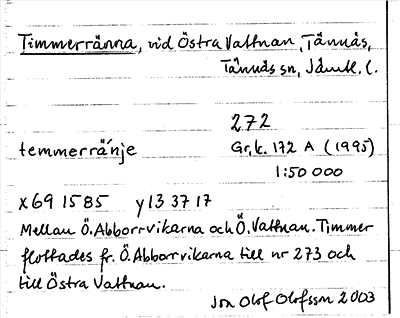 Timmerränna, vid Östra Vattnan, Tännäs,
Tännäs sn, Jämtl. l.
272
temmerränje Gr.k. 172 A (1995)
1:50 000
x 69 15 85 y 13 37 17
Mellan Ö. Abborrvikarna och Ö. Vattnan. Timmer
flottades fr. Ö. Abborrvikarna till nr 273 och
till Östra Vattnan.
Jon Olof Olofsson 2003